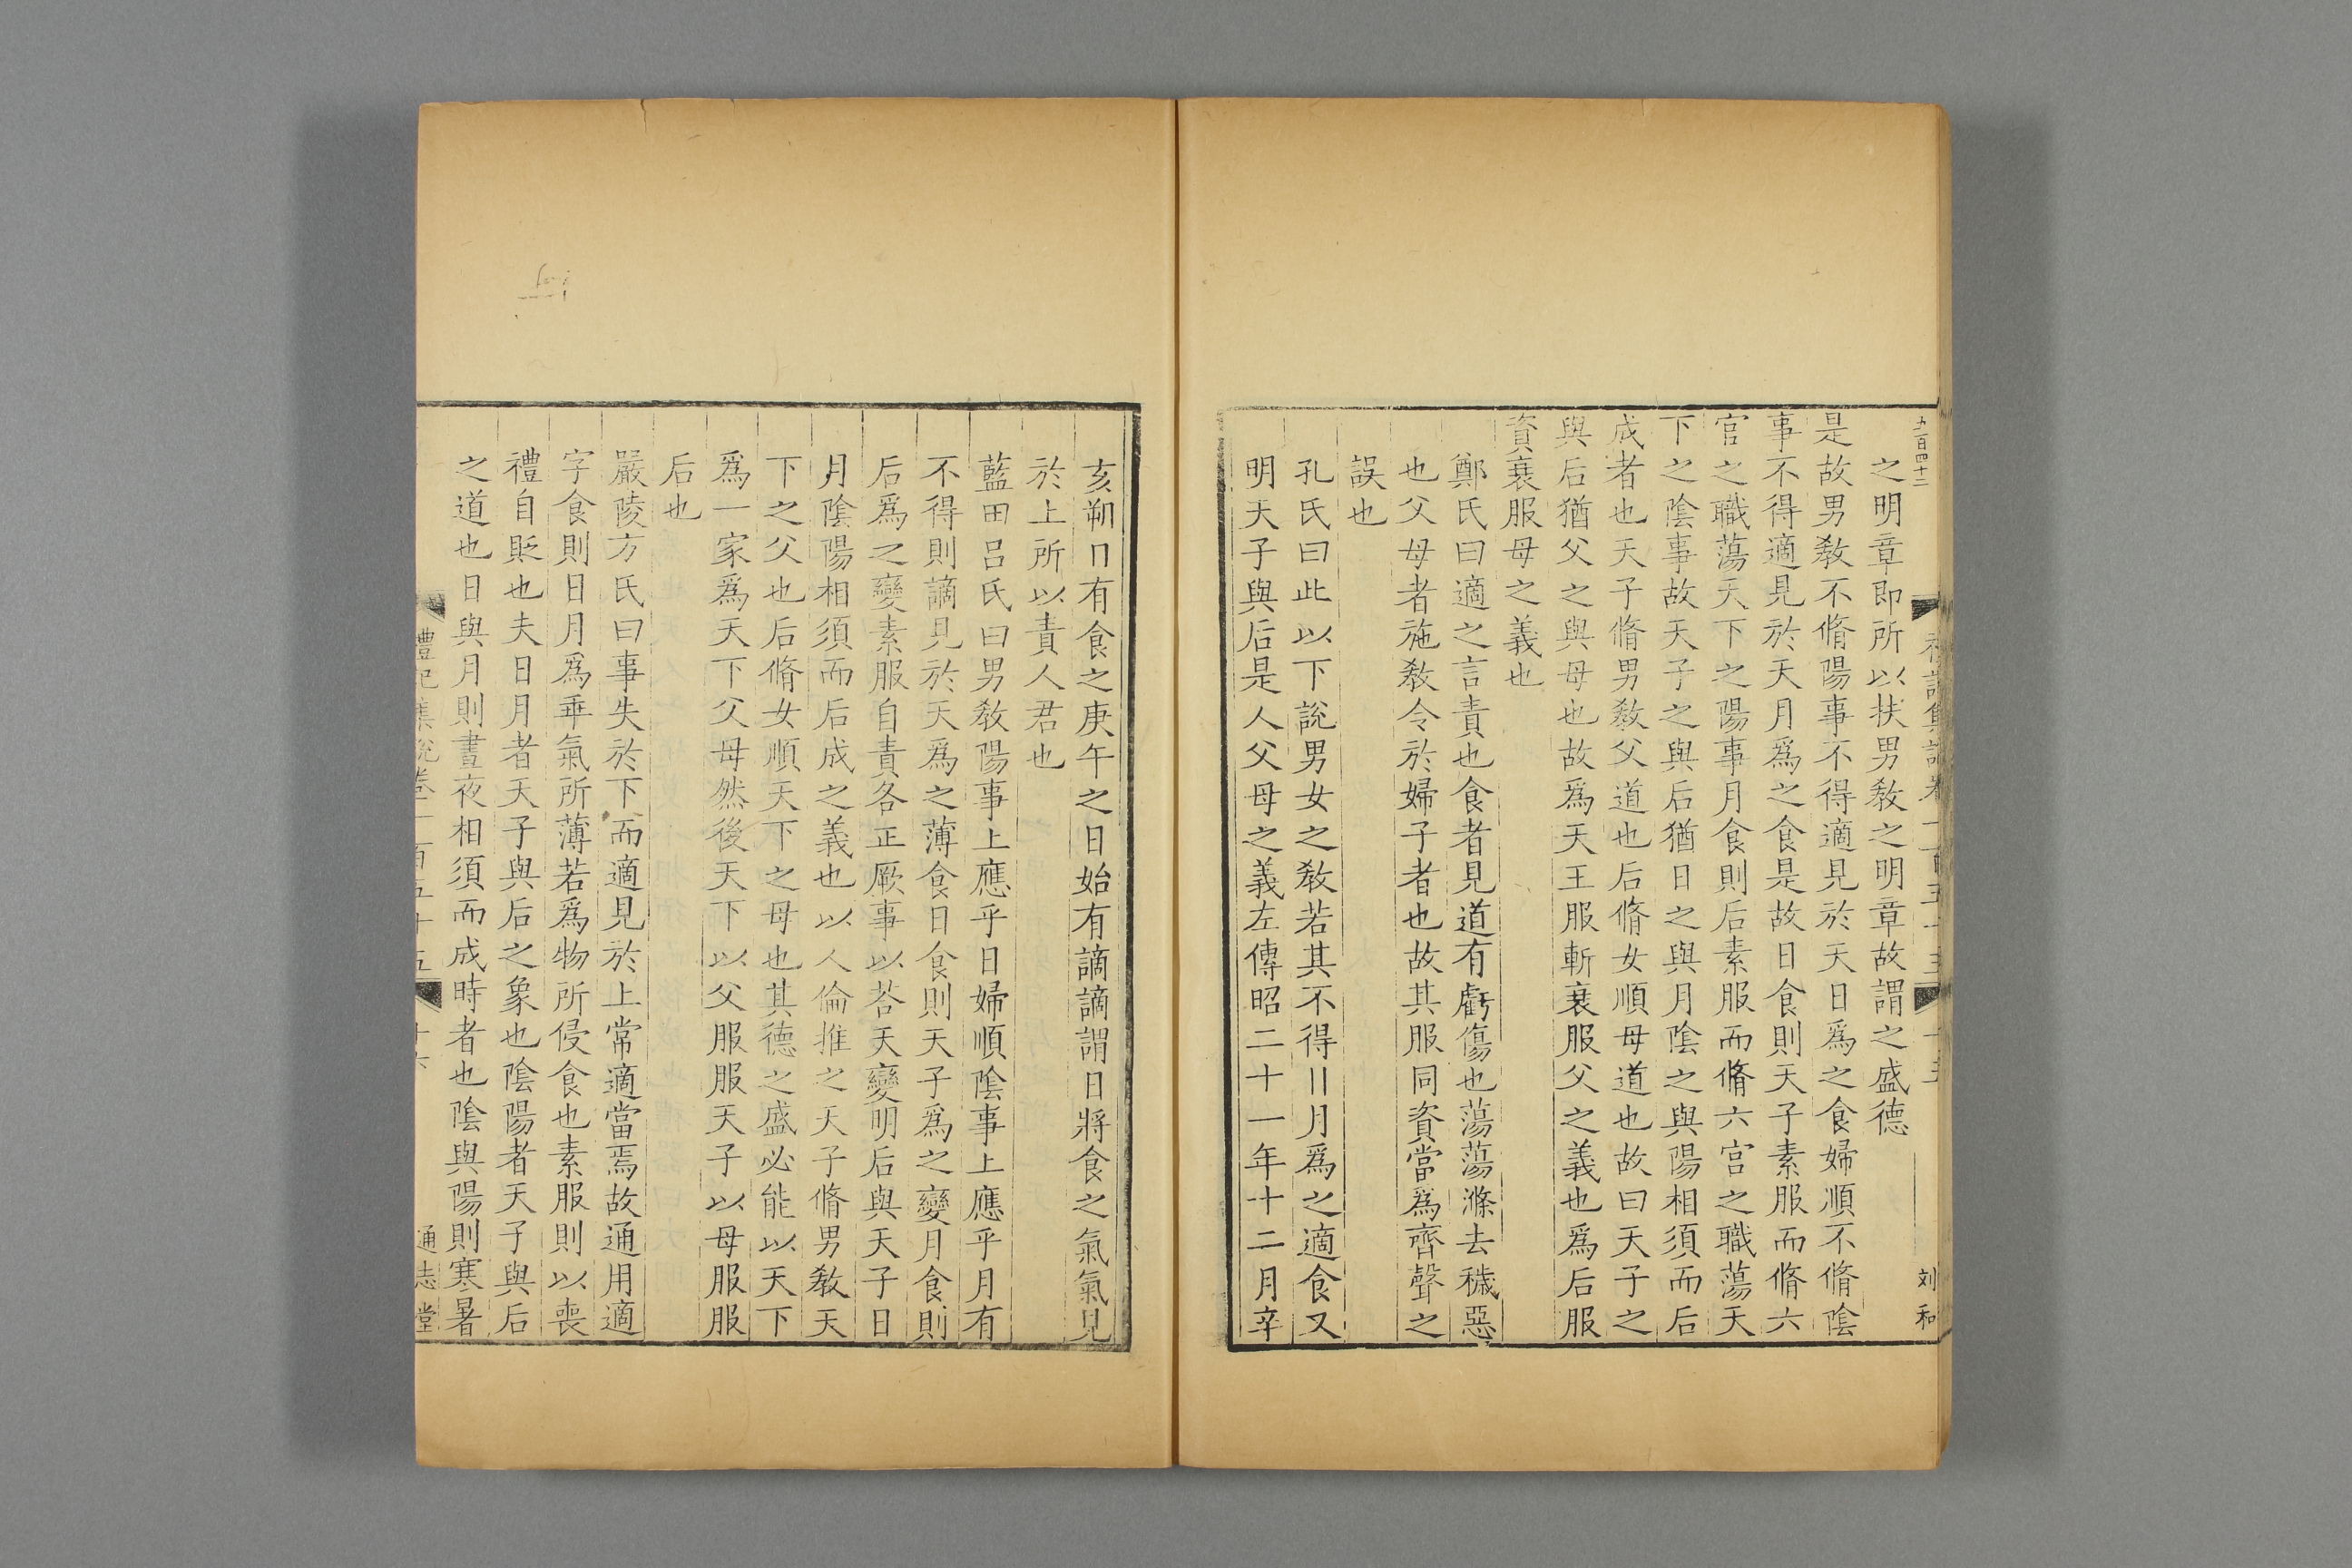 五百四十二
刘和
之明章即所以扶男敎之明章故謂之盛德
是故男敎不脩陽事不得適見於天日爲之食婦順不脩陰
事不得適見於天月爲之食是故日食則天子素服而脩六
官之職蕩天下之陽事月食則后素服而脩六宫之職蕩天
下之陰事故天子之與后猶日之與月陰之與陽相須而后
成者也天子脩男敎父道也后脩女順母道也故曰天子之
與后猶父之與母也故爲天王服斬衰服父之義也爲后服
資衰服母之義也
鄭氏曰適之言責也食者見道有虧傷也蕩蕩滌去穢惡
也父母者施敎令於婦子者也故其服同資當爲齊聲之
誤也
孔氏曰此以下說男女之敎若其不得日月爲之適食又
明天子與后是人父母之義左傳昭二十一年十二月辛
亥朔日有食之庚午之日始有謫謫謂日將食之氣氣見
於上所以責人君也
藍田吕氏曰男敎陽事上應乎日婦順陰事上應乎月有
不得則謫見於天爲之薄食日食則天子爲之變月食則
后爲之變素服自責各正厥事以荅天變明后與天子日
月陰陽相須而后成之義也以人倫推之天子脩男敎天
下之父也后脩女順天下之母也其德之盛必能以天下
爲一家爲天下父母然後天下以父服服天子以母服服
后也
嚴陵方氏曰事失於下而適見於上常適當焉故通用適
字食則日月爲垂氣所薄若爲物所侵食也素服則以喪
禮自貶也夫日月者天子與后之象也陰陽者天子與后
之道也日與月則晝夜相須而成時者也陰與陽則寒暑
禮記集說卷一百五十五
十六
通志堂